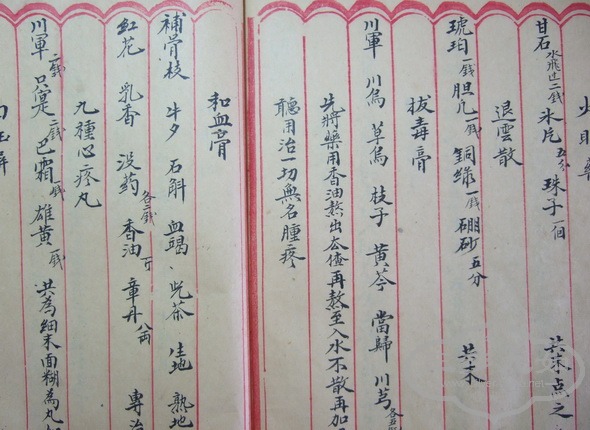 甘石 水飛过二錢 氷片 五分 珠子 一個 共末点之
退雲散
琥珀 一錢 胆凡 一錢 銅綠 一錢 硼砂 五分 共末
拔毒膏
川軍 川烏 草烏 枝子 黄芩 當歸 川芎
先將藥用香油熬出去渣再熬至入水不散再加
聽用治一切無名腫疼
和血膏
補骨枝 牛夕 石斛 血竭、児茶 生地 熟地
紅花 乳香 没药 各二錢 香油 一斤 章丹 八両 專治
九種心疼丸
川軍 二錢 只寔 二錢 巴霜 一錢 雄黄 一錢 共為細末面糊為丸